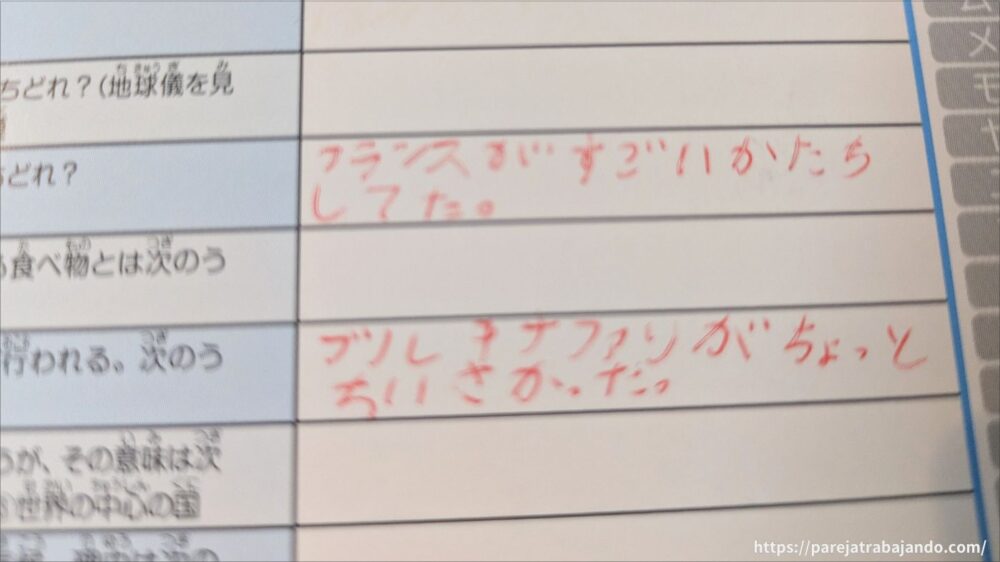 ちどれ？(地球儀を見
どれ？
フランスがすごいかたち
してた。
食べ物とは次のう
行われる。次のう
ブルキナファソがちょっと
ちいさかった。
うが、その意味は次
世界の中心の国
https://parejatrabajando.com/